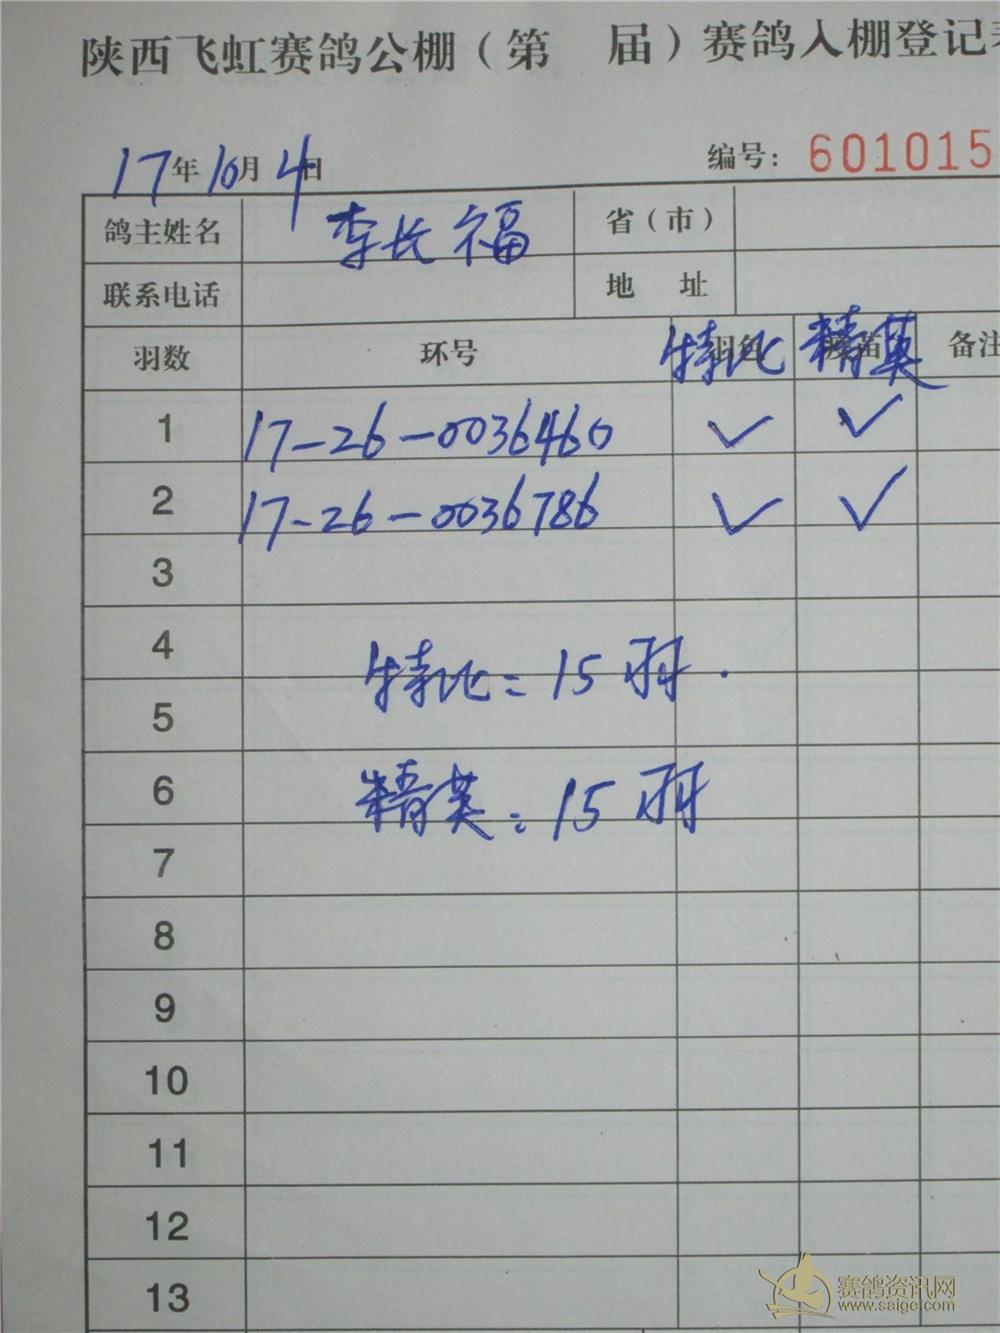 陕西飞虹赛鸽公棚（第 届）赛鸽入棚登记表
17年10月4日 编号：601015
鸽主姓名 李长福 省（市）
联系电话 地 址
羽数 环号 特比 精英 备注
1 17-26-0036460 ✓ ✓
2 17-26-0036786 ✓ ✓
3
4
特比：15羽.
5
6
精英：15羽
7
8
9
10
11
12
13
赛鸽资讯网
www.saige.com